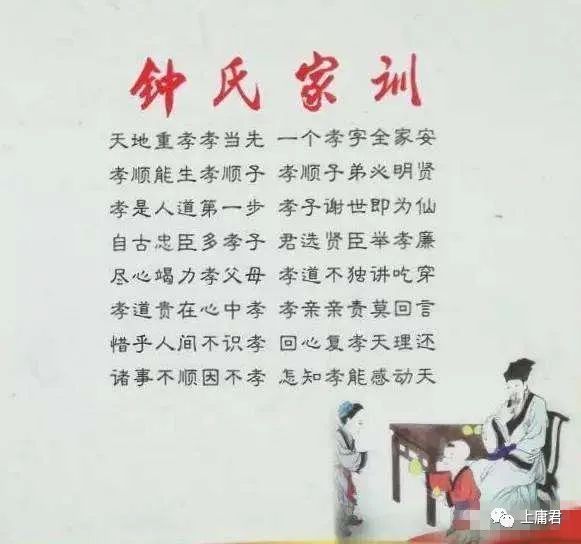 钟氏家训
天地重孝孝当先 一个孝字全家安
孝顺能生孝顺子 孝顺子弟必明贤
孝是人道第一步 孝子谢世即为仙
自古忠臣多孝子 君选贤臣举孝廉
尽心竭力孝父母 孝道不独讲吃穿
孝道贵在心中孝 孝亲亲责莫回言
惜乎人间不识孝 回心复孝天理还
诸事不顺因不孝 怎知孝能感动天
上庸君